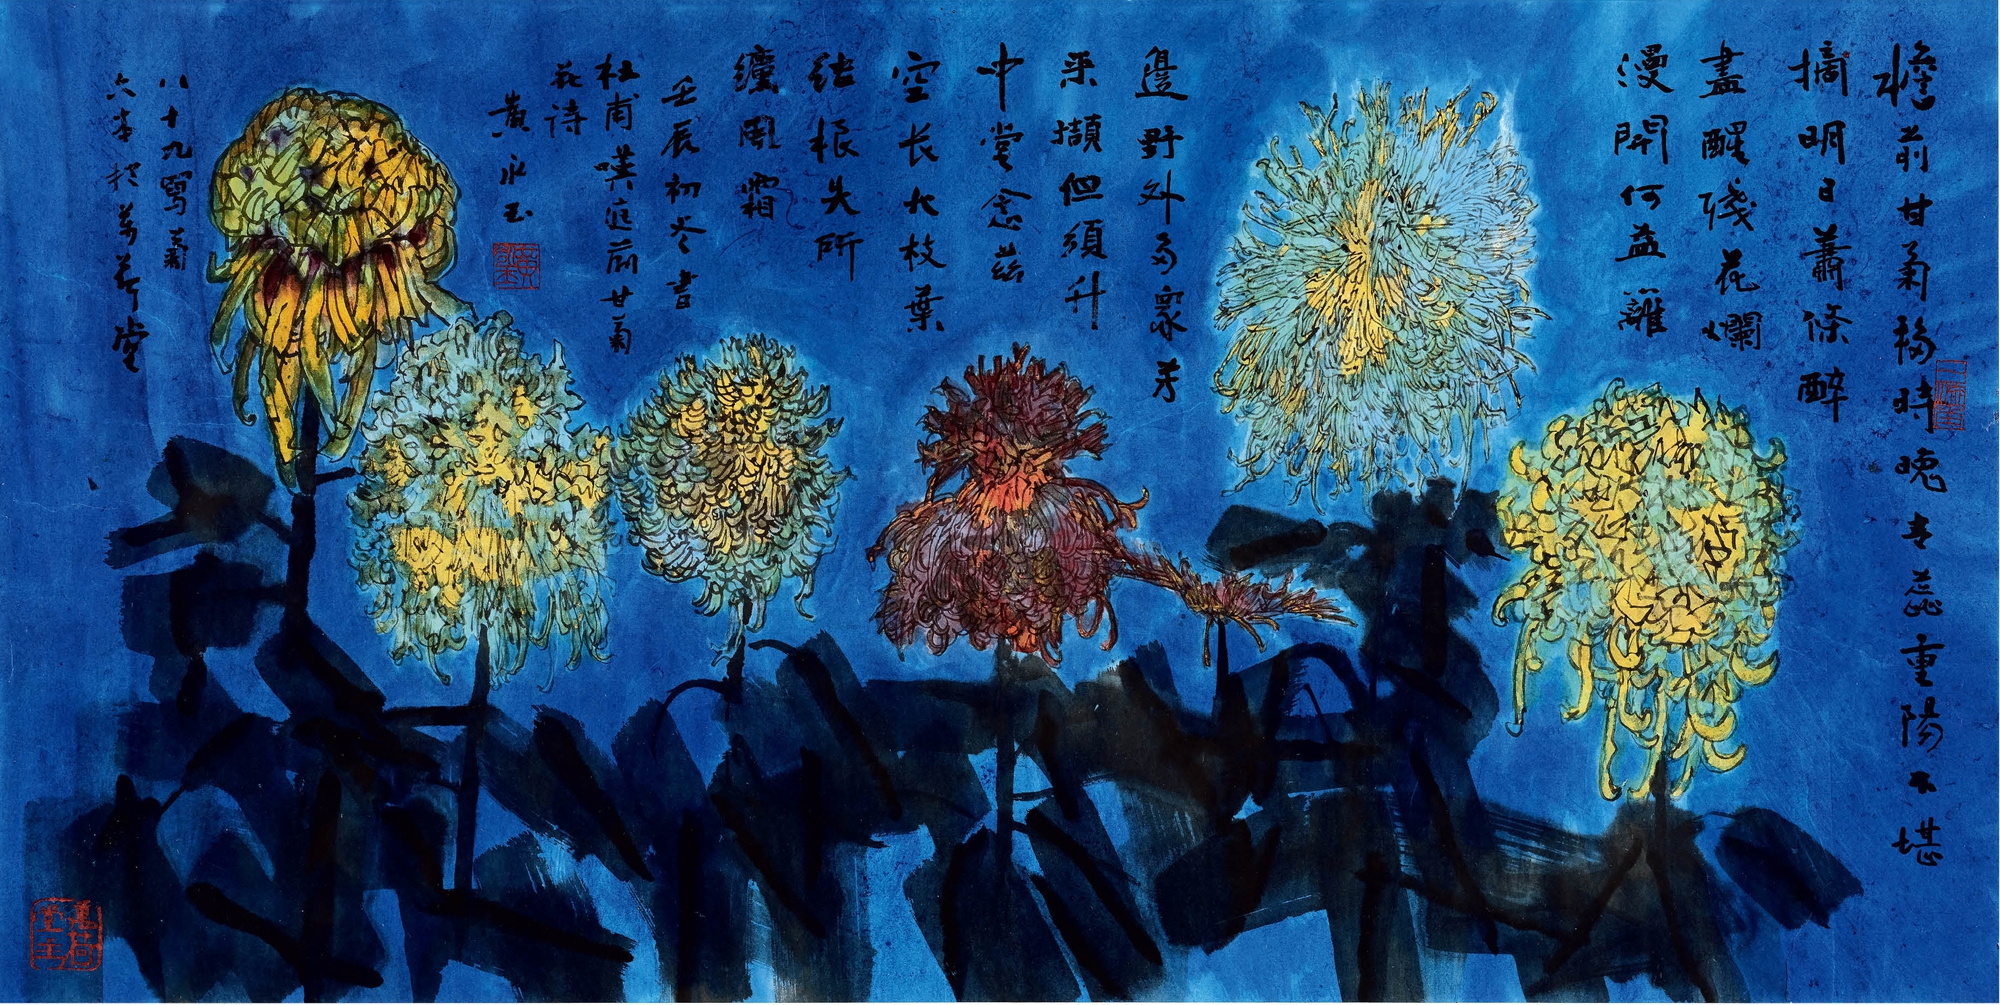 檐前甘菊移時晚青蕊重陽不堪
摘明日蕭條醉
盡醒殘花爛
漫開何益籬
邊野外多眾芳
采擷但須升
中堂念茲
空长大枝葉
结根失所
纏風霜
壬辰初冬書
杜甫嘆庭前甘菊
花诗
黄永玉
八十九寫菊
六本於萬荷堂
萬荷堂主